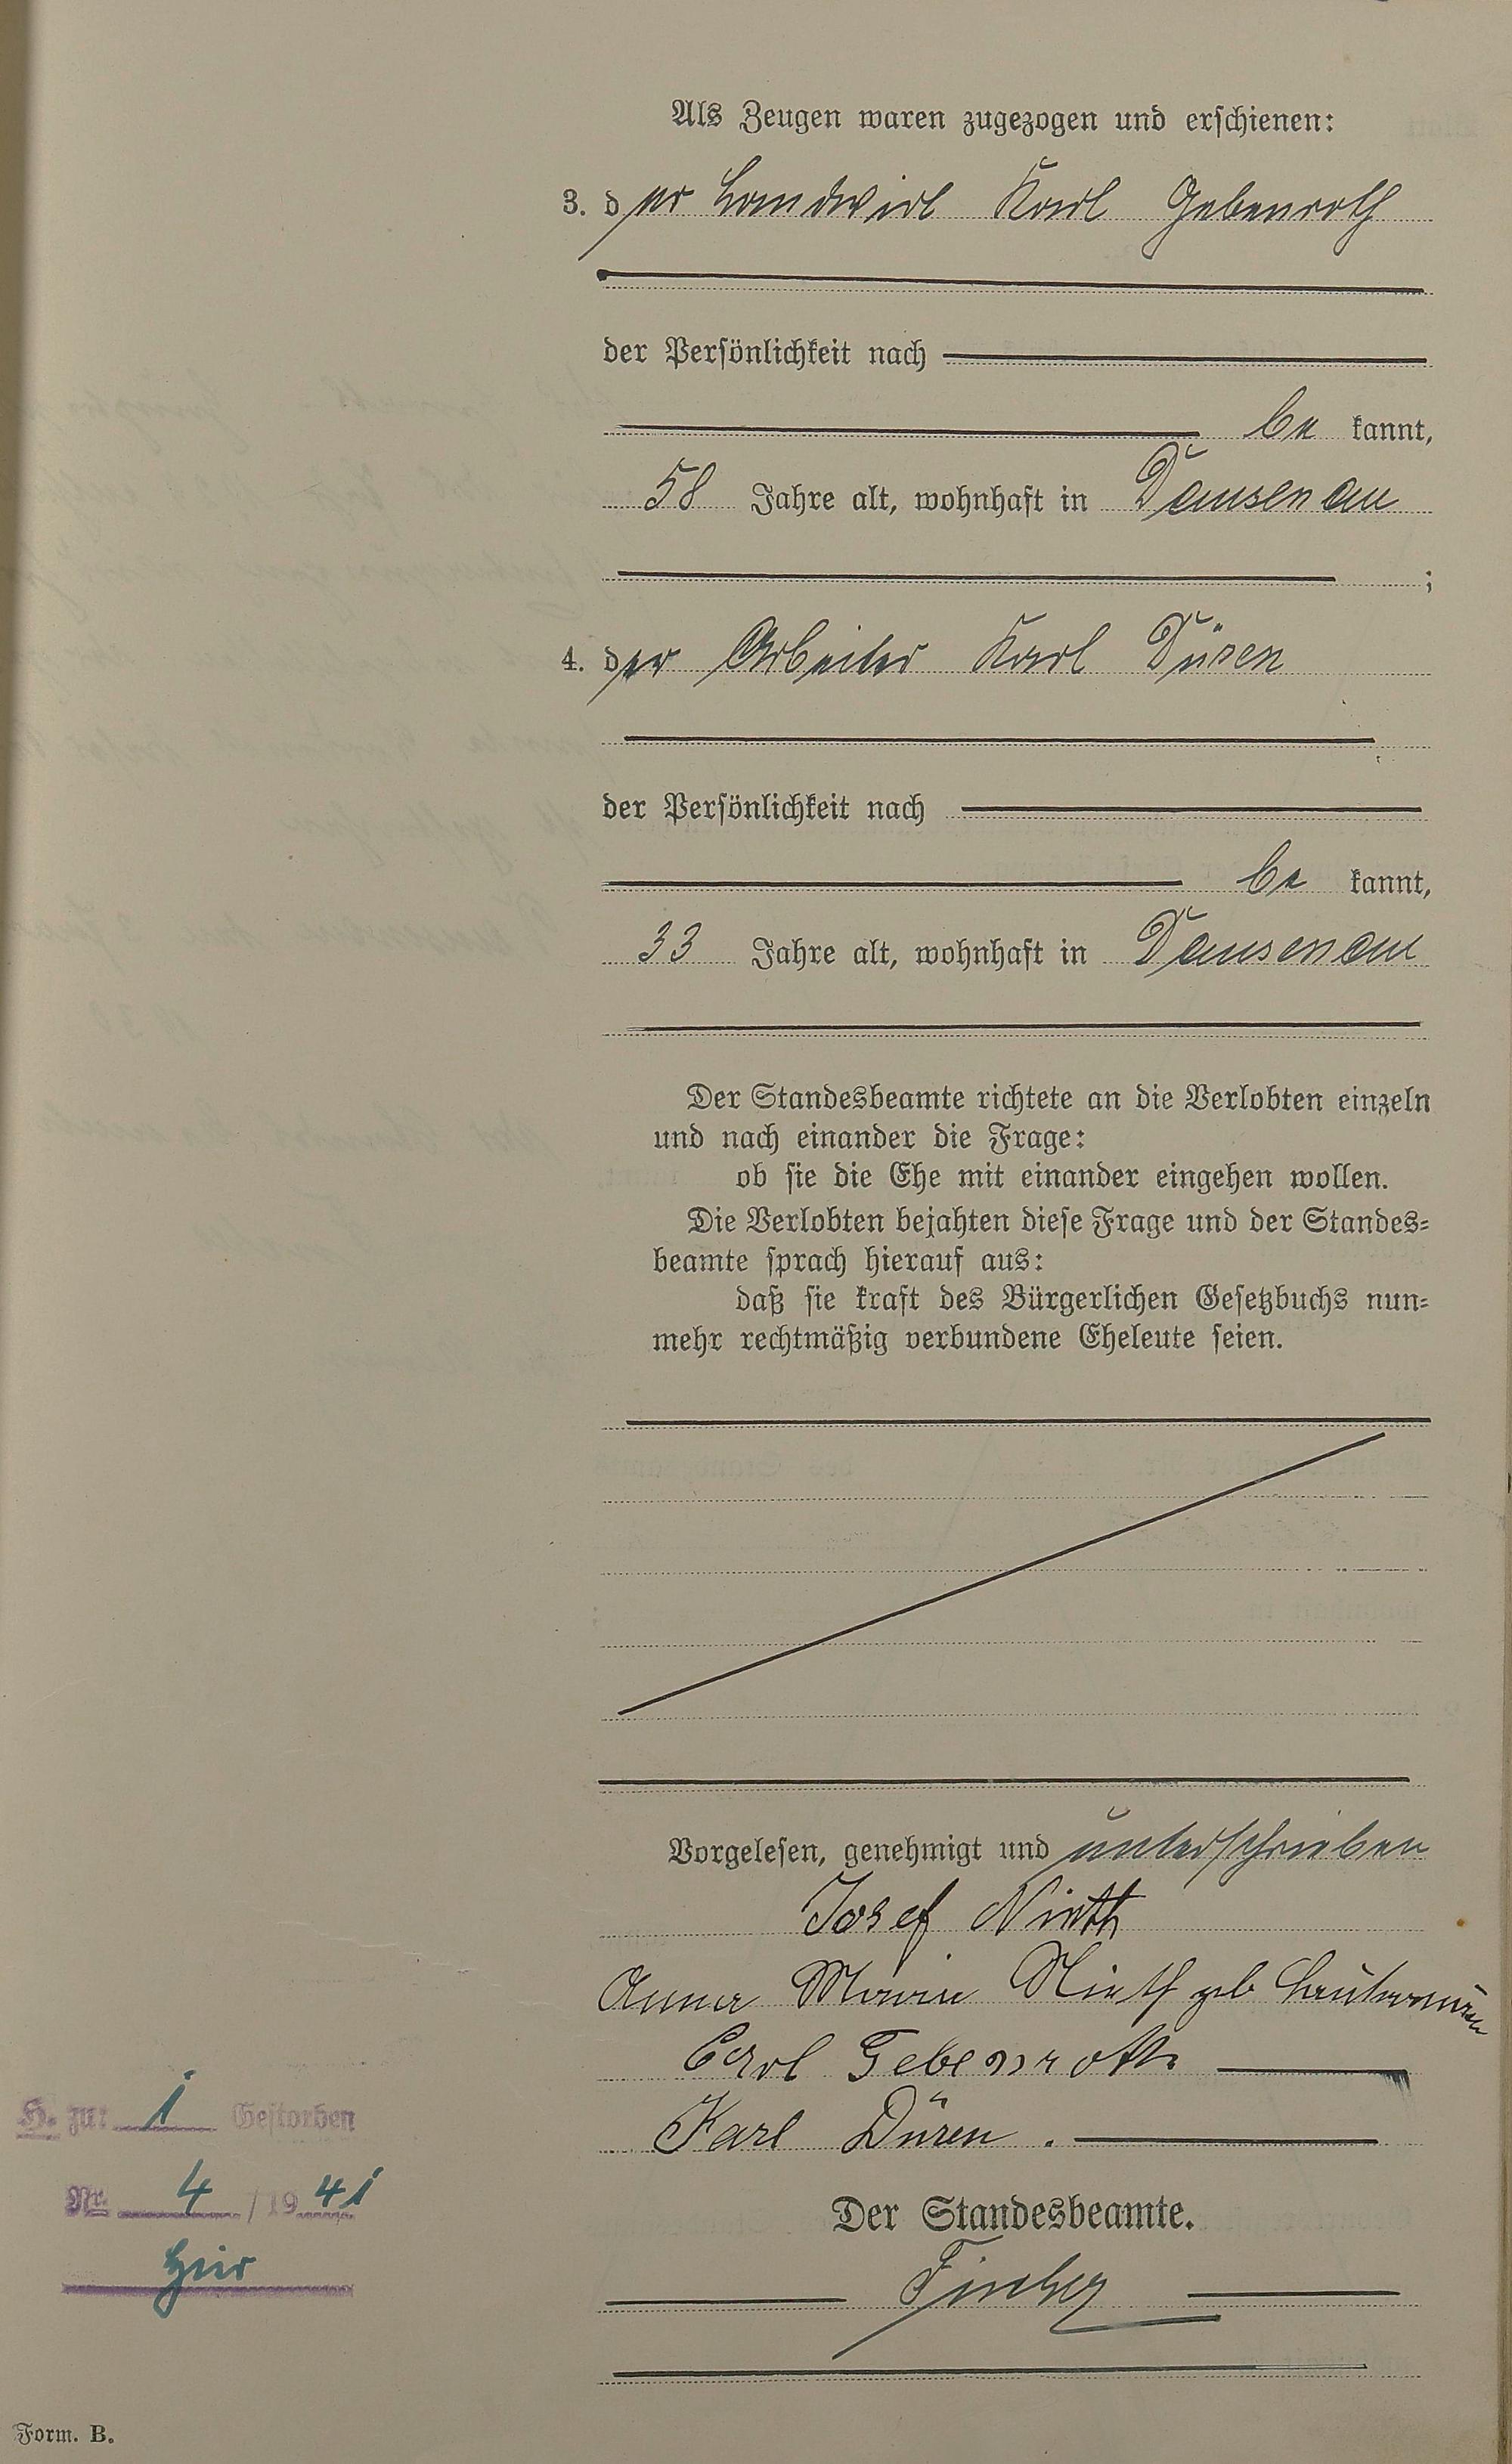 Als Zeugen waren zugezogen und erschienen:
3. der Landwirt Karl Gebenroth
der Persönlichkeit nach
be kannt,
58 Jahre alt, wohnhaft in Dausenau
;
4. der Arbeiter Karl Düren
der Persönlichkeit nach
be kannt,
33 Jahre alt, wohnhaft in Dausenau
Der Standesbeamte richtete an die Verlobten einzeln
und nach einander die Frage:
ob sie die Ehe mit einander eingehen wollen.
Die Verlobten bejahten diese Frage und der Standes-
beamte sprach hierauf aus:
daß sie kraft des Bürgerlichen Gesetzbuchs nun-
mehr rechtmäßig verbundene Eheleute seien.
Vorgelesen, genehmigt und unterschrieben
Josef Nieth
Anna Maria Nieth geb
Carl Gebenroth
Karl Düren.
H. zu: 1 Gestorben
Nr. 4 / 19 41
hier
Der Standesbeamte.
Form. B.